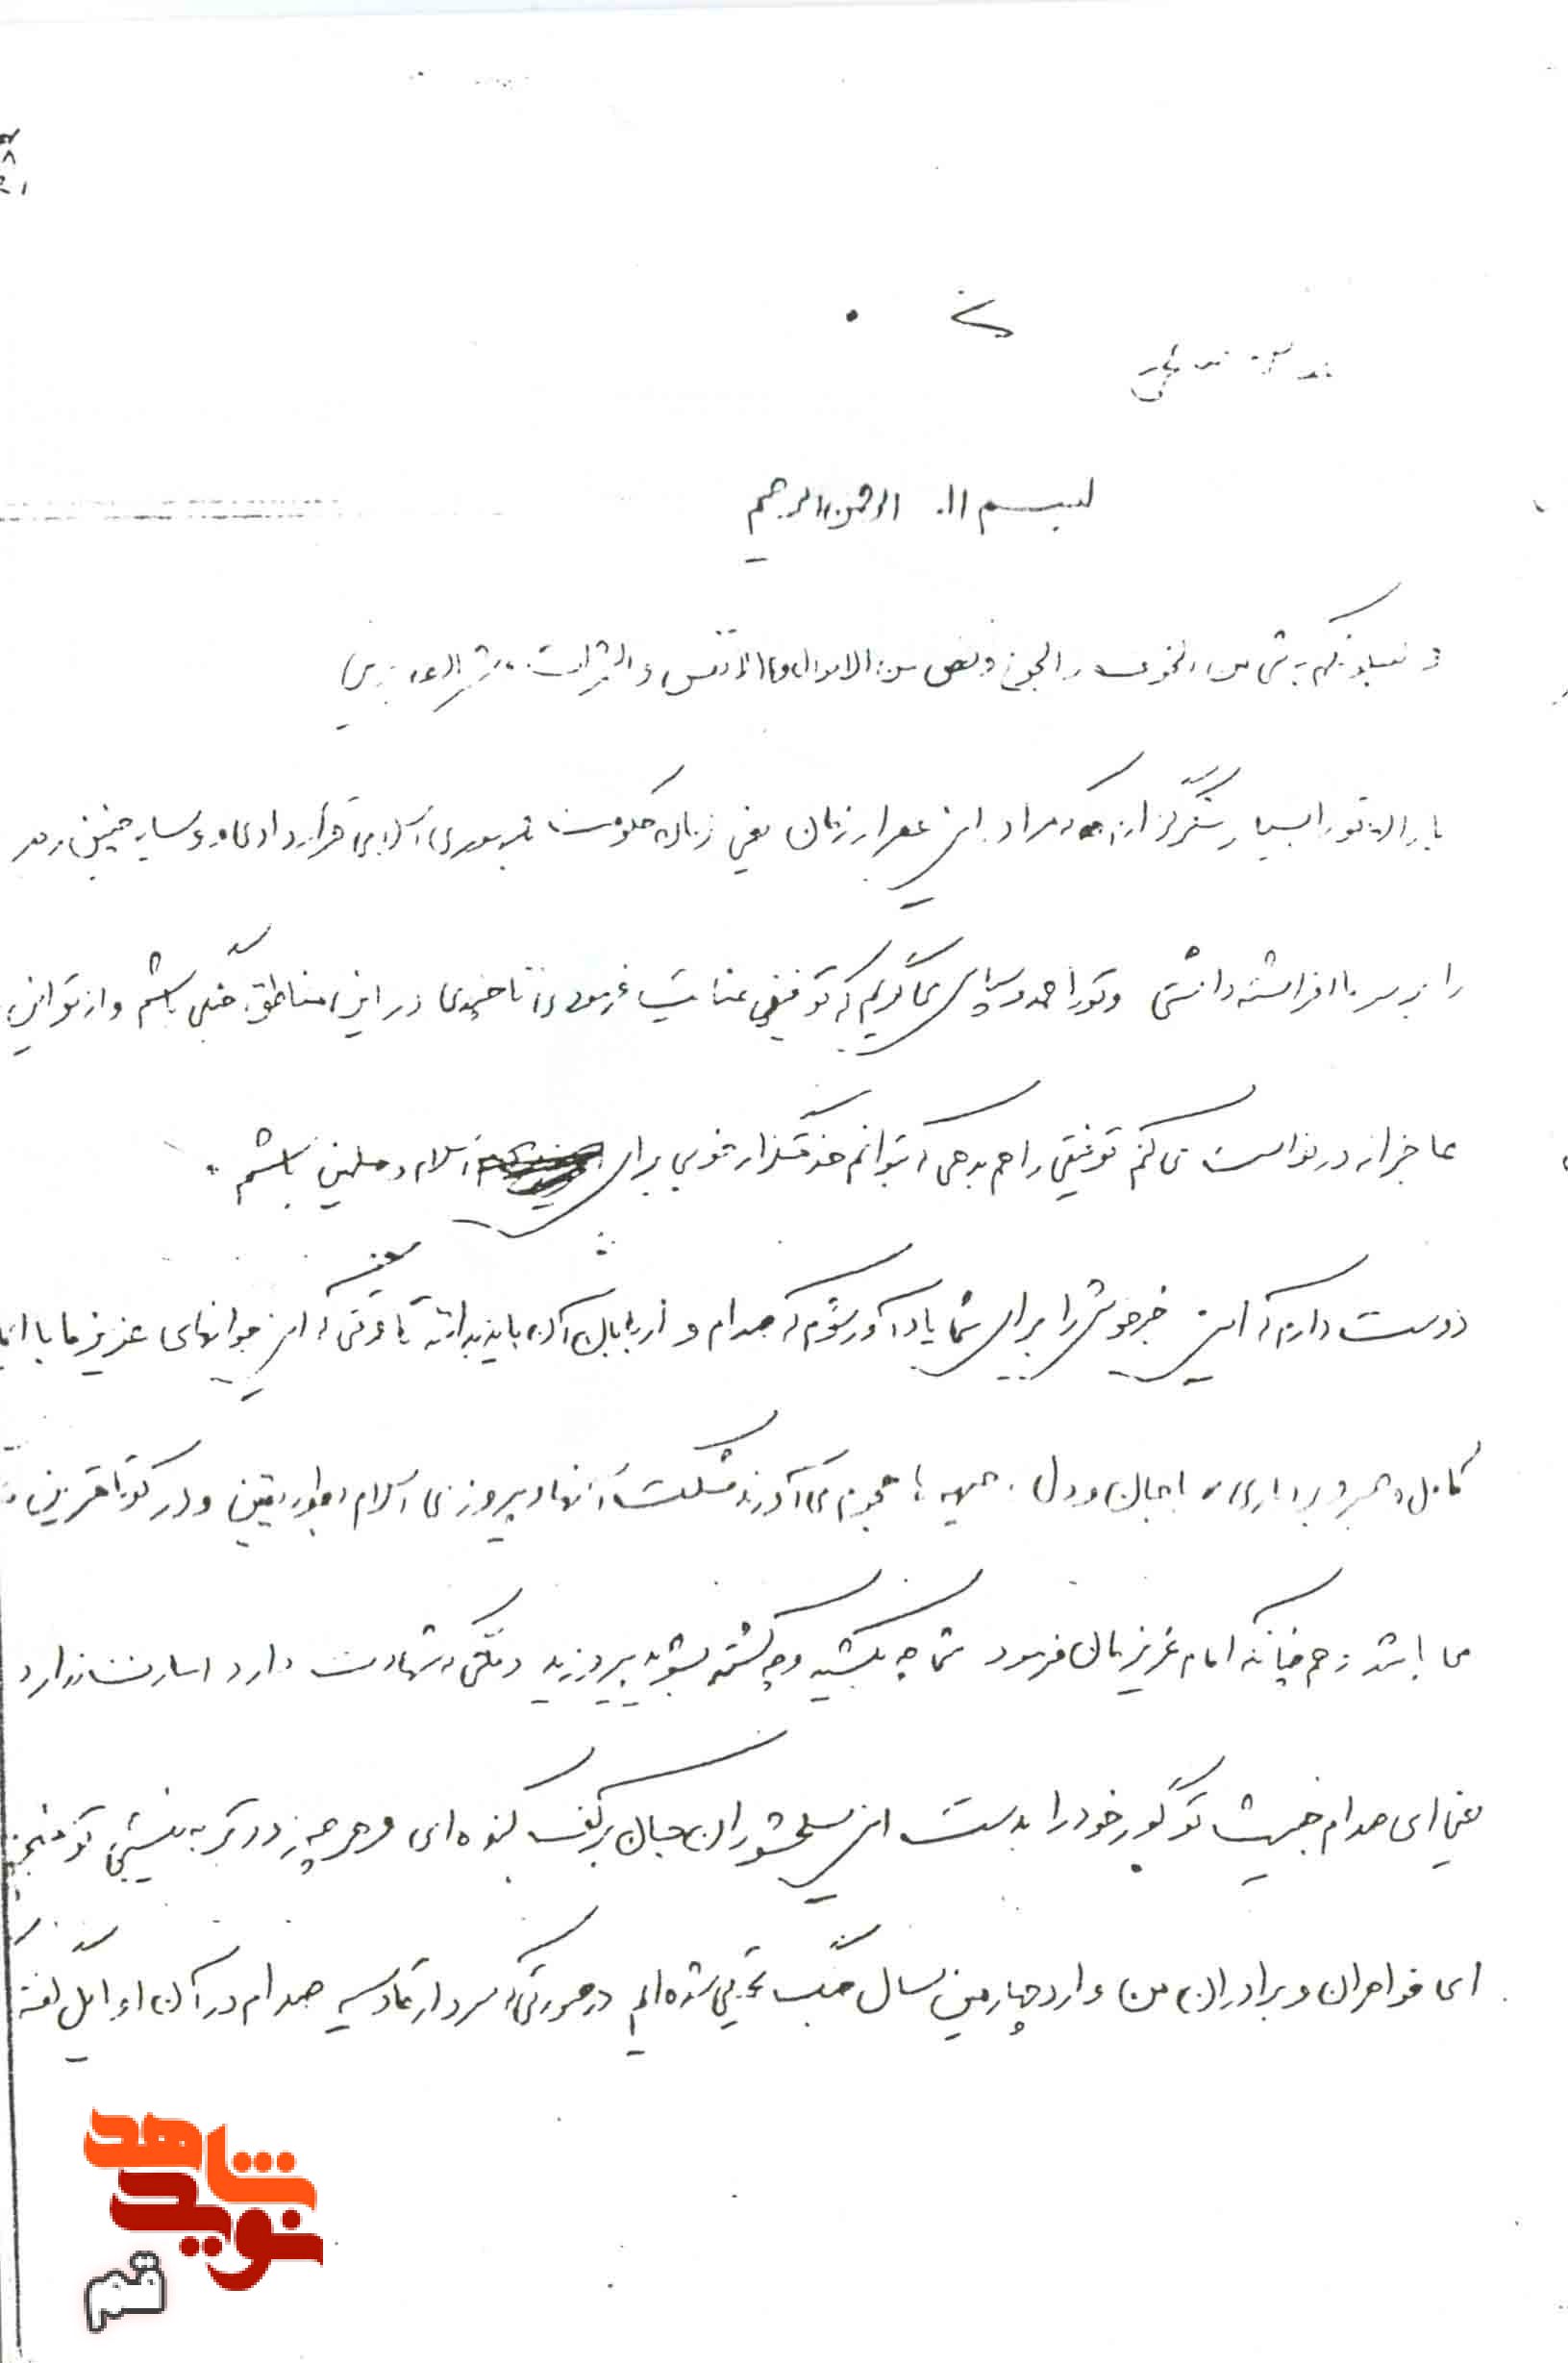 بسم اله الرحمن الرحیم
و لنبلونکم بشی من الخوف و الجوع و نقص من الاموال و الانفس و الثمرات و بشر الصابرین
بارالها تو را بسیار شکرگزارم که مرا در این عصر از زمان یعنی زمان حکومت جمهوری اسلامی قرار دادی و سایه خمینی رهبر
را بر سر ما افراشته داشتی و تو را حمد و سپاس می گویم که توفیقی عنایت فرمودی تا چندی در این مناطق جنگی باشم و از تو این
عاجزانه درخواست می کنم توفیقی را هم بدهی که بتوانم خدمتگذار خوبی برای اسلام و مسلمین باشم .
دوست دارم که این خبر خوش را برای شما یادآور شوم که صدام و اربابان آن باید بدانند تا وقتی که این جوانهای عزیز ما با
کامل و صبر و بردباری با جان و دل به جبهه ها هجوم می آورند شکست آنها و پیروزی اسلام بطور یقین و در کوتاهترین
می باشد و همچنانکه امام عزیزمان فرمود شما چه بکشید و چه کشته بشوید پیروزید و ملتی که شهادت دارد اسارت ندارد
یعنی ای صدام خبیث تو گور خود را بدست این سلحشوران جان بر کف کنده ای و هر چه زودتر به نیستی تو
ای خواهران و برادران من وارد چهارمین سال جنگ تحمیلی شده ایم در صورتی که سردار قادسیه صدام در آن اوایل گفته
شاهد
نوید
قم